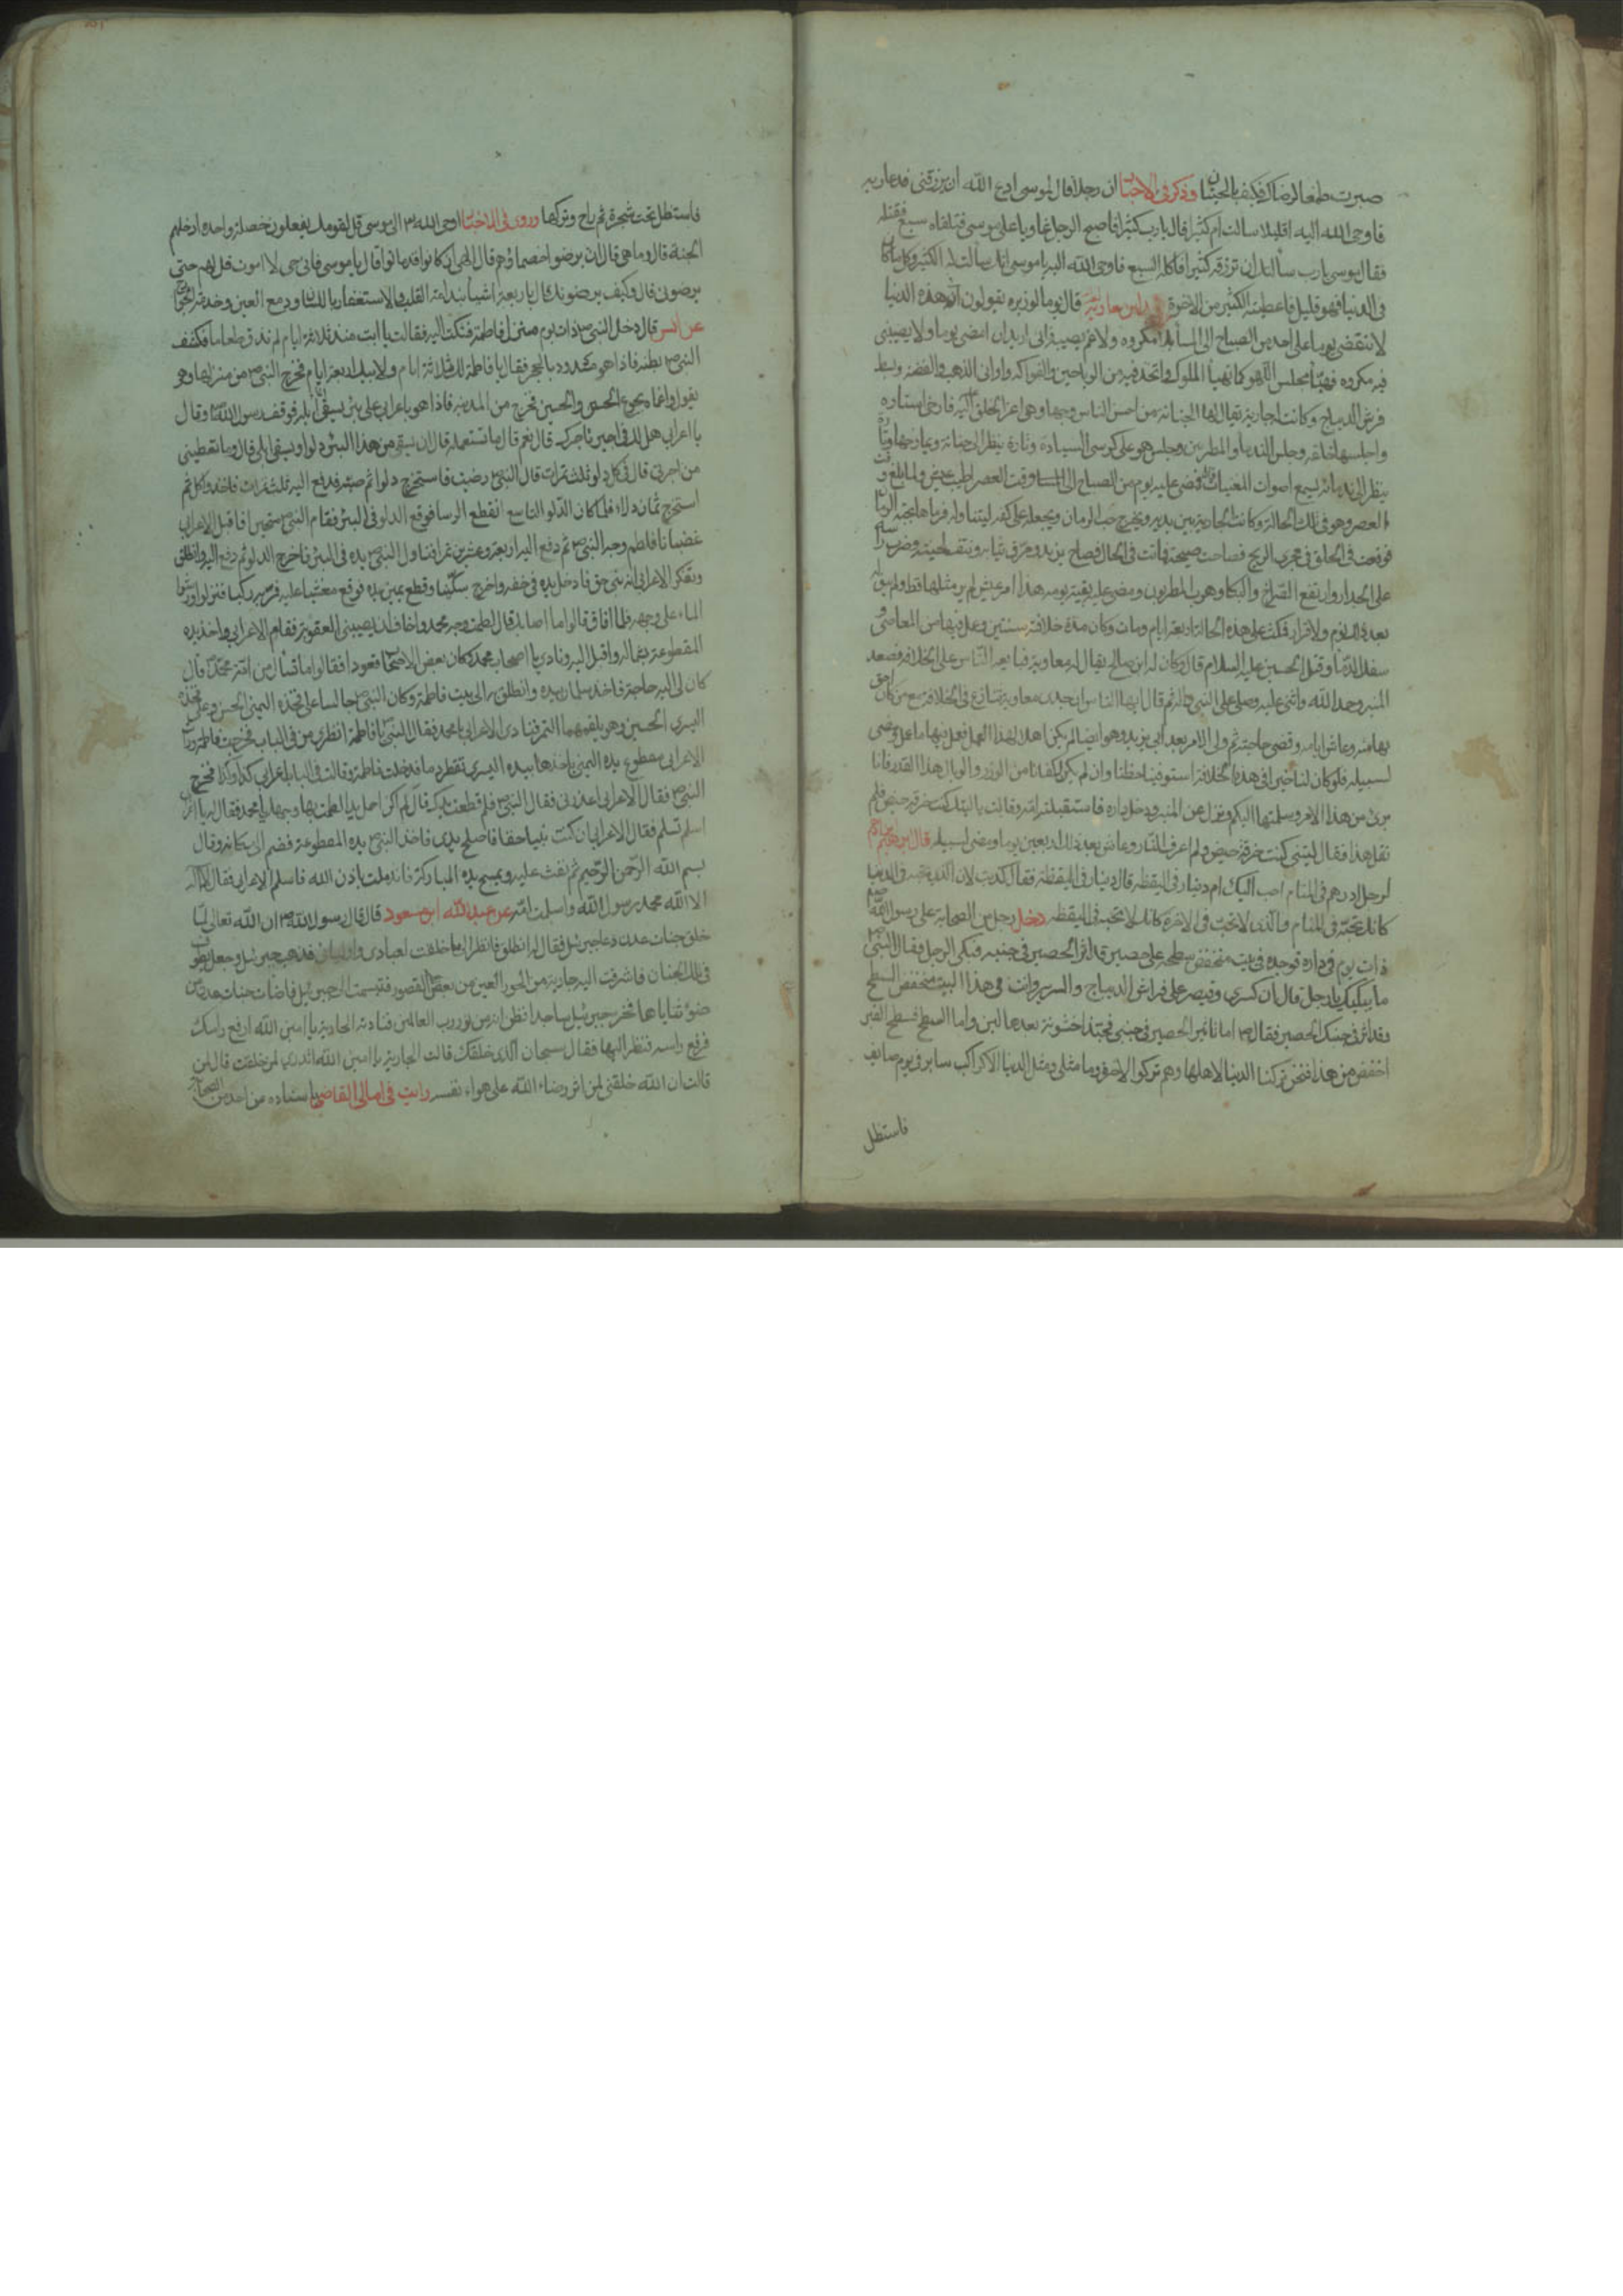 صبرت طمعا لرضاك فكيف بالجنان وذكر في الاخبار ان رجلا قال لموسى ادع الله ان يرزقني فدعا ربه
فاوحى الله اليه اقليلا سالت ام كثيرا قال يارب كثيرا فاصبح الرجل غاويا على موسى فتلقاه سبع فقتله
فقال موسى يارب سالتك ان ترزقه كثيرا فاكله السبع فاوحى الله اليه ياموسى انك سالت له الكثير وكل ما كان
فى الدنيا فهو قليل فاعطيته الكثير من الاخرة بن معاوية قال يوما لوزيره يقولون ان هذه الدنيا
لا تنقضى يوما على احد من الصباح الى المساء بلا مكروه ولا غم يصيبه فانى اريد ان امضى يوما ولا يصيبنى
فيه مكروه فهيأ مجلس اللهو كما تهيأ الملوك واتخذ فيه من الرياحين والفواكه واوانى الذهب والفضة وبسط
فرش الديباج وكانت له جارية يقال لها الجنانة من احسن الناس وجها وهى اعز الخلق اليه فارخى استاره
واجلسها خلفه وجلس الندماء والمطربين وجلس هو على كرسى السيادة وتارة ينظر الى جنانة ويمازحها وتارة
ينظر الى ندمائه يسمع اصوات المغنيات فمضى عليه يوم من الصباح الى وقت العصر اطيب عيش ولما بلغ وقت
العصر وهو فى تلك الحالة وكانت الجارية بين يديه وتخرج حب الرمان ويجعله على كفه ليتناوله فرماها بحبة الرمان
فوقعت فى الحلق فى مجرى الريح فصاحت صيحة وماتت فى الحال فصاح يزيد ومزق ثيابه ونتف لحيته وضرب راسه
على الجدار وارتفع الصراخ والبكاء وهرب المطربون ومضى عليه بقية يومه هذا امر عيش لم ير مثلها قط ولم يبق له
بعد ذلك نوم ولا قرار فمكث على هذه الحالة اربعة ايام ومات وكان مدة خلافته سنتين وعمل فيها من المعاصى و
سفك الدماء وقتل الحسين عليه السلام قال وكان له ابن صالح يقال له معاوية فبايعه الناس على الخلافة فصعد
المنبر وحمد الله واثنى عليه وصلى على النبى واله ثم قال ايها الناس ان جدى معاوية تنازع فى الخلافة مع من كان احق
بها منه وعاش ايامه وقضى حاجته ثم ولى الامر بعد ابى يزيد وهو ايضا لم يكن اهلا لهذا العمل فعمل فيها ما عمل ومضى
لسبيله فلو كان لنا خير فى هذه الخلافة استوفينا حظنا وان لم يكن لكفانا من الوزر والوبال هذا القدر فانا
برئ من هذا الامر وسلمتها اليكم ونزل عن المنبر ودخل داره فاستقبلته امه وقالت ياليتك كنت خرقة حيض فلم
تقل هذا فقال ليتنى كنت خرقة حيض ولم اعرف النار وعاش بعد ذلك اربعين يوما ومضى لسبيله قال ابرهيم بن ادهم
لرجل ادرهم فى المنام احب اليك ام دينار فى اليقظة قال دينار فى اليقظة فقال كذبت لان الذى تحبه فى الدنيا
كانك تحبه فى المنام والذى لا تحب فى الاخرة كانك لا تحبه فى اليقظة دخل رجل من الصحابة على رسول الله صلعم
ذات يوم فى داره فوجده فى بيت منخفض سطحه على حصير قد اثر الحصير فى جنبيه فبكى الرجل فقال النبى
ما يبكيك يا رجل قال ان كسرى وقيصر على فراش الديباج والسرير وانت فى هذا البيت منخفض السطح
وقد اثر فى جنبك الحصير فقال اما تاثير الحصير فى جنبى فحبذا خشونة بعدها لين واما السطح فسطح القبر
اخفض من هذا فنحن تركنا الدنيا لاهلها وهم تركوا الاخرة وما مثلى ومثل الدنيا الا كراكب سار فى يوم صايف
فاستظل
فاستظل تحت شجرة ثم راح وتركها وروى فى الاخبار اوحى الله الى موسى قل لقومك يفعلون خصلة واحدة ادخلهم
الجنة قال وما هى قال ان يرضوا خصماؤهم قال الهى ان كانوا قد ماتوا قال يا موسى فانى حى لا اموت قل لهم حتى
يرضونى قال وكيف يرضونك قال باربعة اشياء بندامة القلب والاستغفار باللسان ودمع العين وخدمة الجوارح
عن انس قال دخل النبى ذات يوم منزل فاطمة فشكت اليه فقالت يا ابت منذ ثلاثة ايام لم نذق طعاما فكشف
النبى بطنه فاذا هو مشدود بالحجر فقال يا فاطمة لك ثلاثة ايام ولابيك اربعة ايام فخرج النبى من منزلها وهو
يقول واغماه بجوع الحسن والحسين فخرج من المدينة فاذا هو باعرابى على بئر يسقى ابله فوقف رسول الله وقال
يا اعرابى هل لك فى اجير تاجرك قال نعم قال ما تستعمله قال ان يسقى من هذا البئر دلوا ويسقى ابلى قال وما تعطينى
من اجرتى قال فى كل دلو ثلث تمرات قال النبى رضيت فاستخرج دلوا ثم صبه فدفع اليه ثلث تمرات فاخذ وكل ثم
استخرج ثمان دلاء فلما كان الدلو التاسع انقطع الرسا فوقع الدلو فى البئر فقام النبى متحيرا فاقبل الاعرابى
غضبانا فلطم وجه النبى ثم دفع اليه اربعة وعشرين تمرا فتناول النبى بيده فى البئر فاخرج الدلو ثم دفع اليه وانطلق
وتفكر الاعرابى انه نبى حق فادخل يده فى خفه واخرج سكينا وقطع يمين يده فوقع مغشيا عليه فمر به ركب فنزلوا ورشوا
الماء على وجهه فلما افاق قالوا ما اصابك قال لطمت وجه محمد واخاف ان يصيبنى العقوبة فقام الاعرابى واخذ يده
المقطوعة بشماله واقبل اليه ونادى يا اصحاب محمد وكان بعض الاصحاب قعودا فقالوا ما تسال من امة محمد قال
كان لى اليه حاجة فاخذ سلمان بيده وانطلق به الى بيت فاطمة وكان النبى جالسا على فخذه اليمنى الحسن وعلى فخذه
اليسرى الحسين وهو يلقمهما التمر فنادى الاعرابى يا محمد فقال النبى يا فاطمة انظرى من فى الباب فخرجت فاطمة ورات
الاعرابى مقطوع يده اليمنى ياخذها بيده اليسرى تقطر دما فدخلت فاطمة وقالت فى الباب اعرابى كذا وكذا فخرج
النبى فقال الاعرابى اعذرنى فقال النبى فلم قطعت يدك قال لم اكن احمل يدا لطمت بها وجهك يا محمد فقال له يا اعرابى
اسلم تسلم فقال الاعرابى ان كنت نبيا حقا فاصلح يدى فاخذ النبى يده المقطوعة فضم الى مكانه وقال
بسم الله الرحمن الرحيم ثم نفث عليه ويمسح يده المباركة فاندملت باذن الله فاسلم الاعرابى فقال لا اله
الا الله محمد رسول الله واسلمت امته عن عبد الله ابن مسعود قال قال رسول الله ان الله تعالى لما
خلق جنات عدن دعا جبرئيل فقال له انطلق فانظر الى ما خلقت لعبادى واوليائى فذهب جبرئيل وجعل يطوف
فى تلك الجنان فاشرفت اليه جارية من الحور العين من بعض القصور فتبسمت الى جبرئيل فاضات جنات عدن من
ضوء ثناياها فخر جبرئيل ساجدا فظن انه من نور رب العالمين فنادته الجارية يا امين الله ارفع راسك
فرفع راسه فنظر اليها فقال سبحان الذى خلقك قالت الجارية يا امين الله اتدرى لمن خلقت قال لمن
قالت ان الله خلقنى لمن اثر رضاء الله على هواء نفسه رايت فى امالى القاضى باسناده عن احد من الصحابة